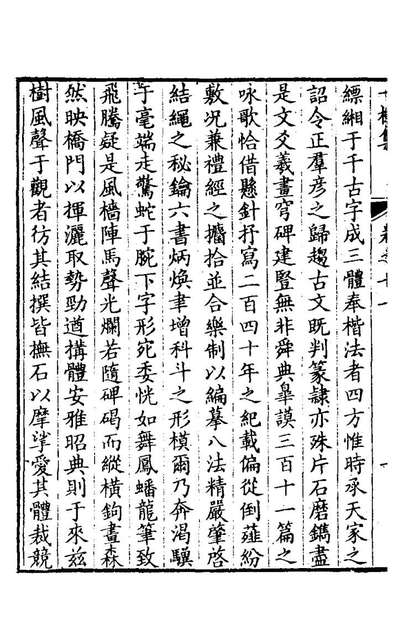 縹緗于千古字成三體奉楷法者四方惟時承天家之
詔令正羣彦之歸趨古文既判篆隸亦殊片石磨鐫盡
是文爻羲畫穹碑建豎無非舜典臯謨三百十一篇之
咏歌恰借懸針抒寫二百四十年之紀載偏從倒薤紛
敷况兼禮經之攟拾並合樂制以編摹八法精嚴肇啓
結繩之秘鑰六書炳煥聿增科斗之形模爾乃奔渴驥
于毫端走驚蛇于腕下字形宛委恍如舞鳳蟠龍筆致
飛騰疑是風檣陣馬聲光爛若隨碑碣而縱橫鉤畫森
然映橋門以揮灑取勢勁遒搆體安雅昭典則于來兹
樹風聲于觀者彷其結撰皆撫石以摩挲愛其體裁競